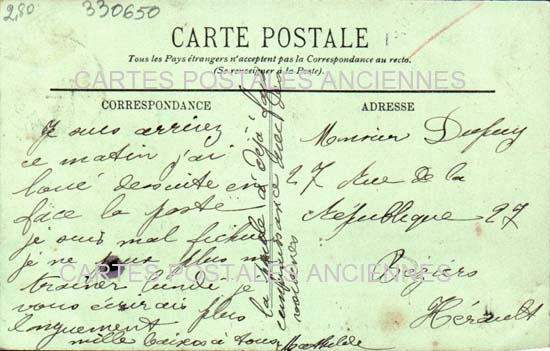 2,80
330650
CARTE POSTALE
Tous les Pays étrangers n'acceptent pas la Correspondance au recto.
(Se renseigner à la Poste).
CARTES POSTALES ANCIENNES
CORRESPONDANCE
je suis arrivez
ce matin j'ai
loué dessuite en
face la poste
je suis mal fichue
je ne peux plus me
trainer lundi je
vous écrirais plus
longuement
mille baisers à tous
Mathilde
la famille a déjà fait
connaissance avec des
voisines
ADRESSE
Monsieur Dupuy
27 Rue de la
République 27
Beziers
Hérault
CARTES POSTALES ANCIENNES